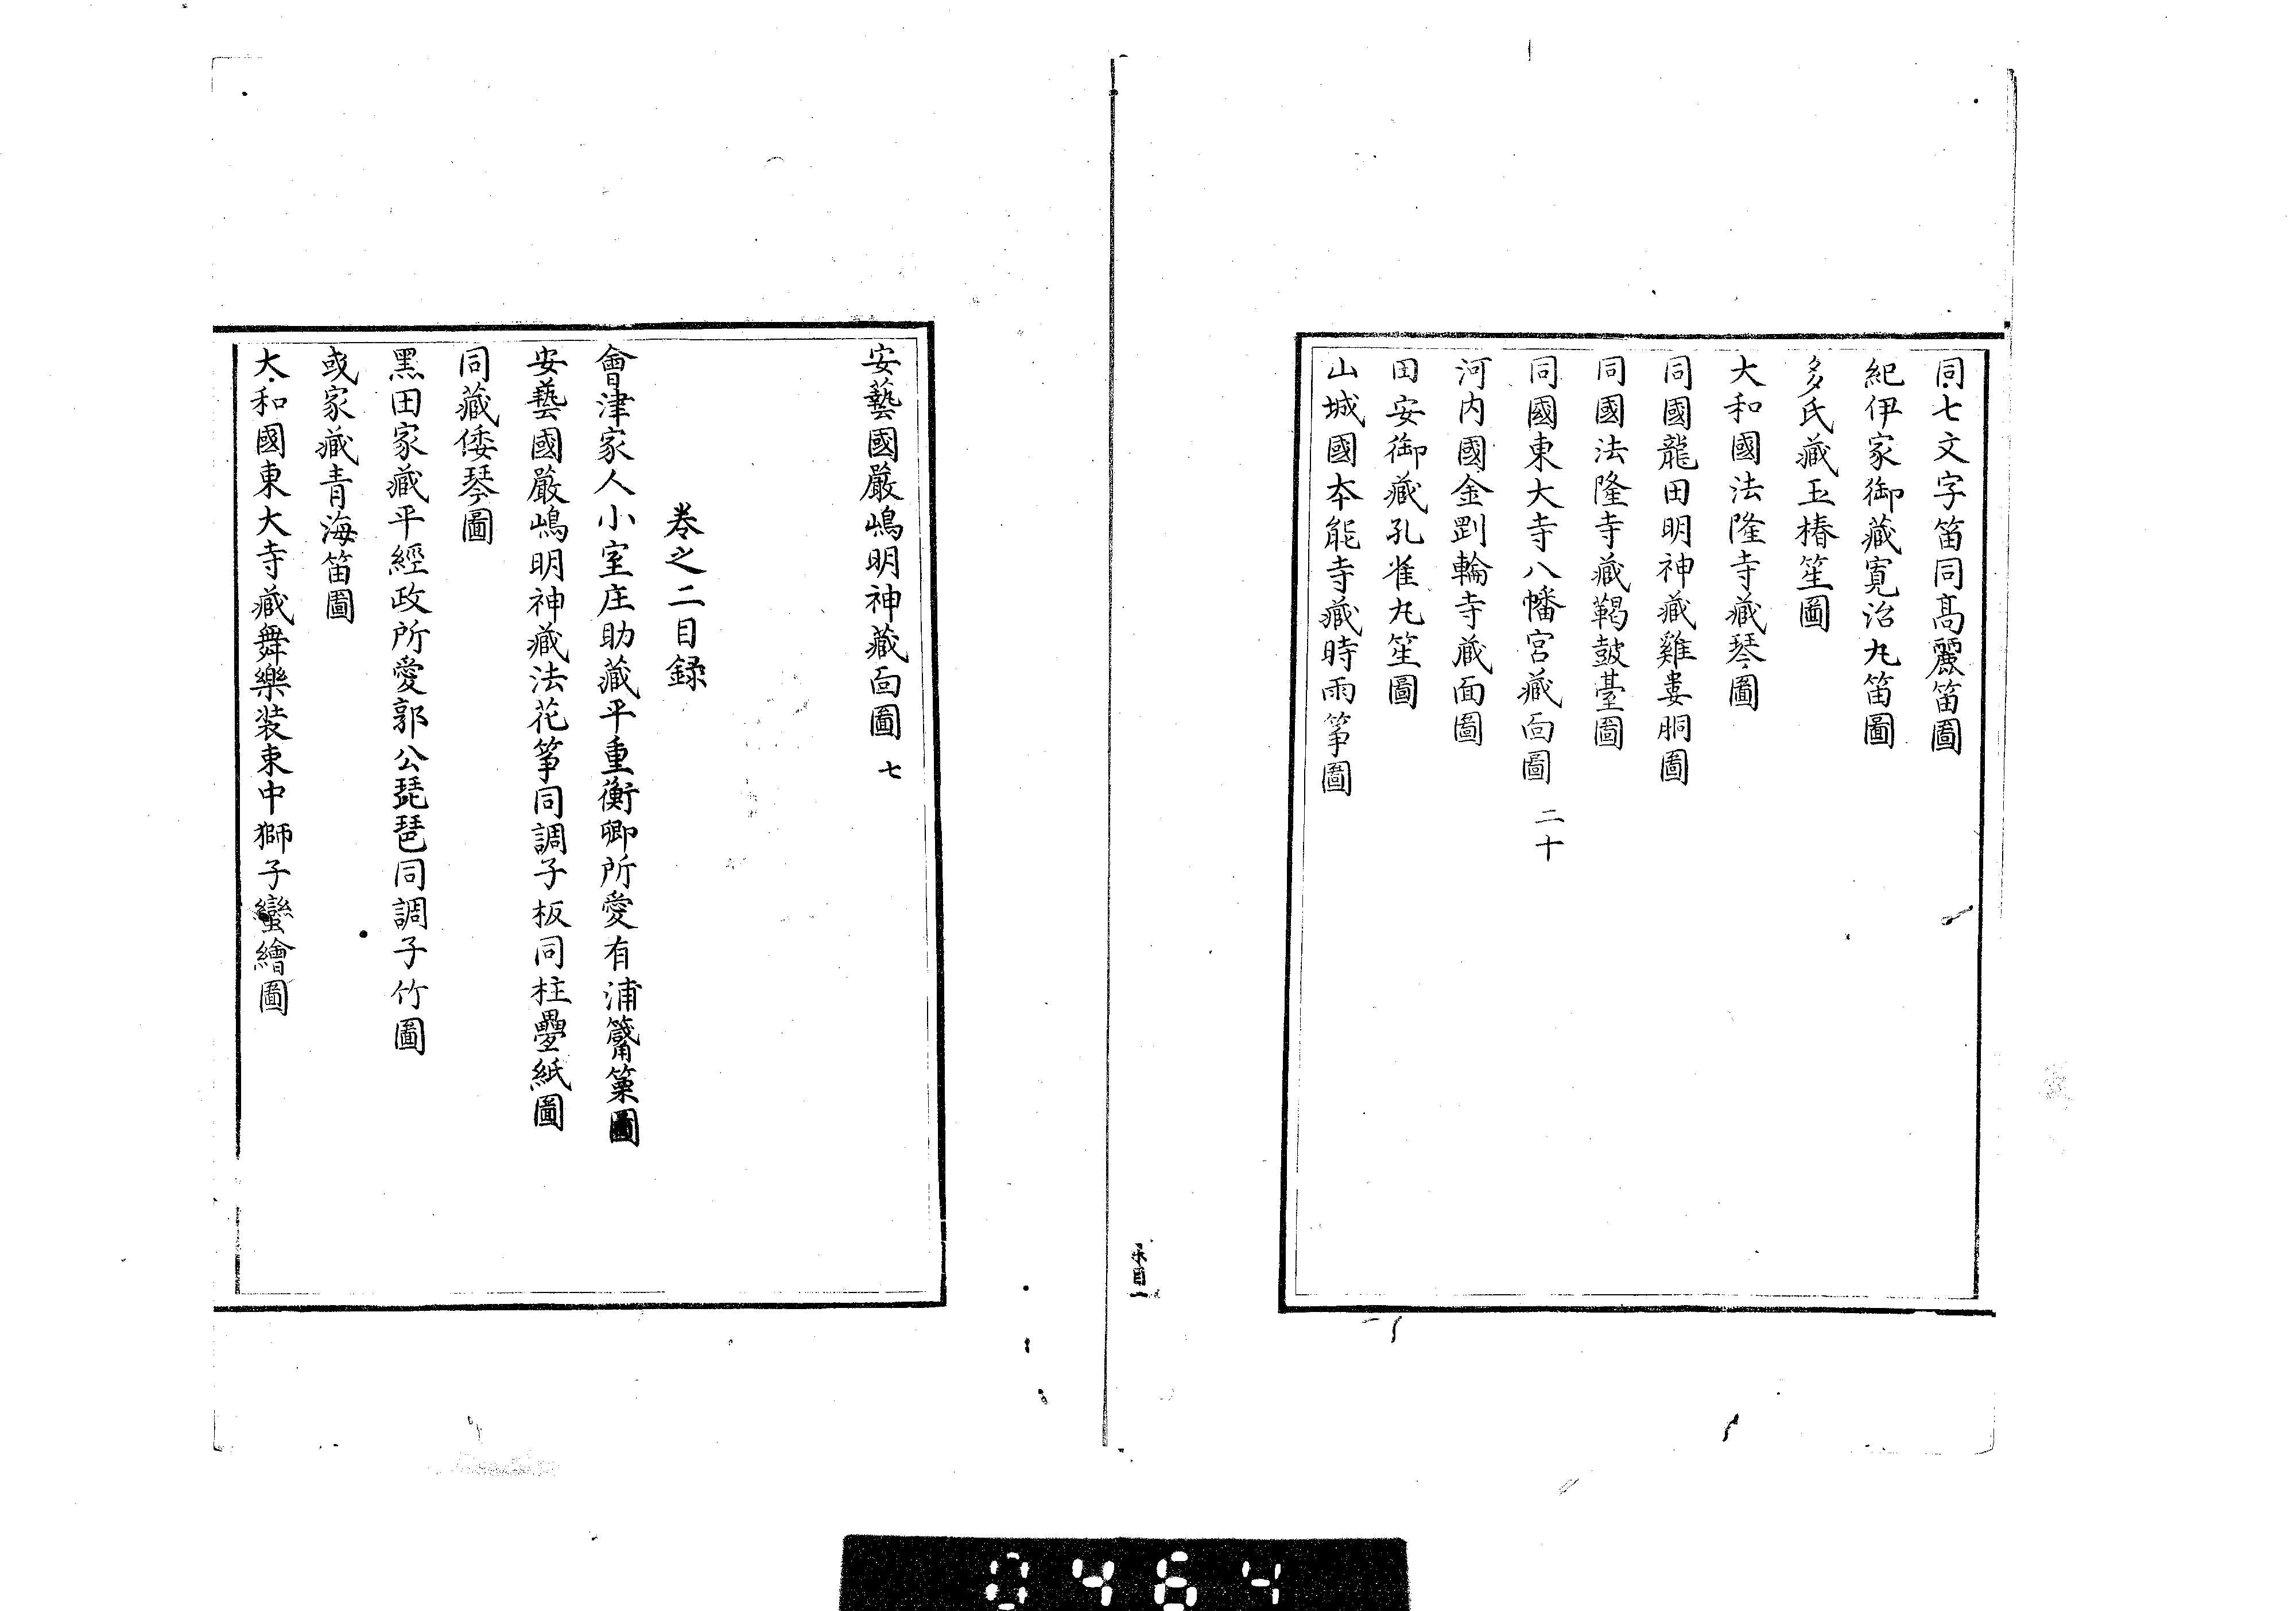 同七文字笛同髙麗笛圖
紀伊家御藏寛治丸笛圖
多氏藏玉椿笙圖
大和國法隆寺藏琴圖
同國龍田明神藏雞婁胴圖
同國法隆寺藏鞨皷臺圖
同國東大寺八幡宮藏面圖 二十
河内國金剛輪寺藏面圖
田安御藏孔雀丸笙圖
山城國本能寺藏時雨箏圖
安藝國嚴嶋明神藏面圖 七
卷之二目録
會津家人小室庄助藏平重衡卿所愛有浦篳篥圖
安藝國嚴嶋明神藏法花箏同調子板同柱疊紙圖
同藏倭琴圖
黑田家藏平經政所愛郭公琵琶同調子竹圖
或家藏青海笛圖
大和國東大寺藏舞樂装束中獅子蠻繪圖
0464